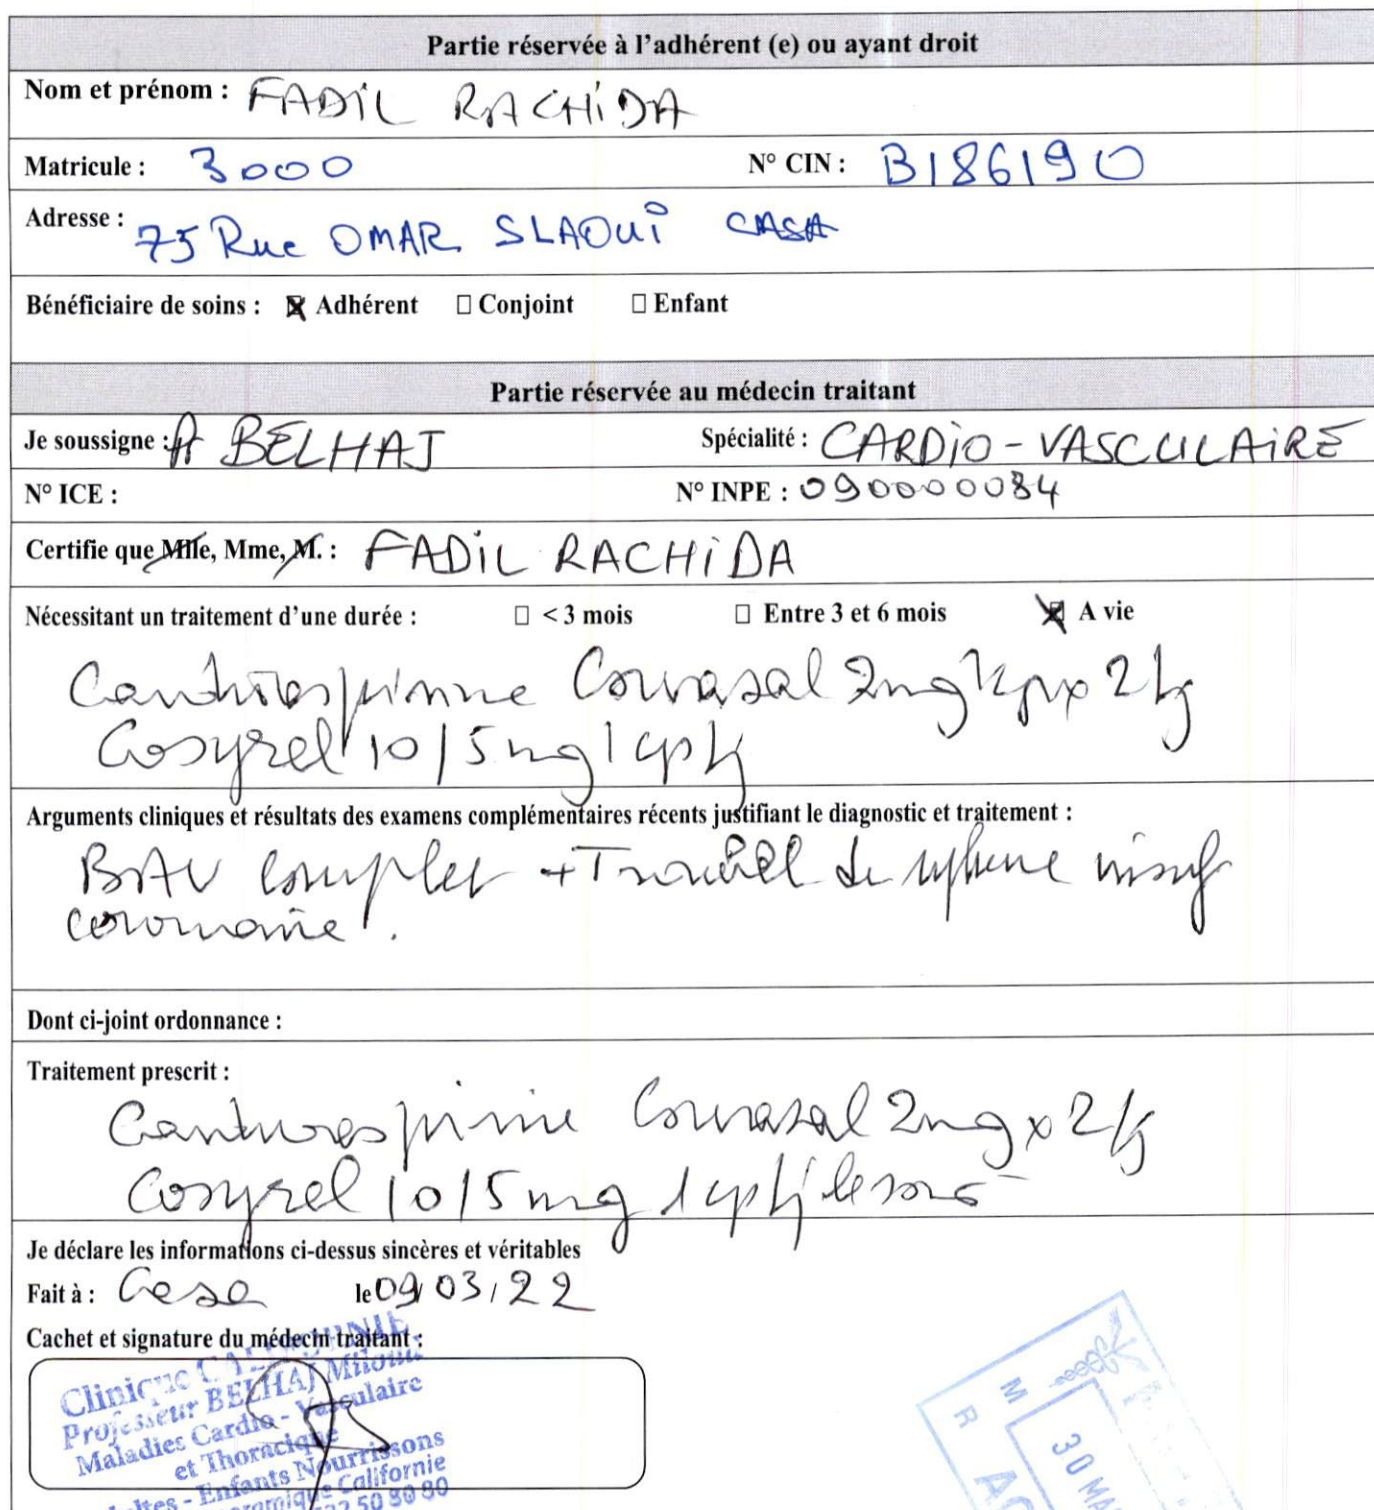 Partie réservée à l'adhérent (e) ou ayant droit
Nom et prénom : FADIL RACHIDA
Matricule : 3000 N° CIN : B186190
Adresse : 75 Rue OMAR SLAOUI CASA
Bénéficiaire de soins : ☒ Adhérent ☐ Conjoint ☐ Enfant
Partie réservée au médecin traitant
Je soussigne : A BELHAJ Spécialité : CARDIO-VASCULAIRE
N° ICE : N° INPE : 090000084
Certifie que Mlle, Mme, M. : FADIL RACHIDA
Nécessitant un traitement d'une durée : ☐ < 3 mois ☐ Entre 3 et 6 mois ☒ A vie
Corvasal 2mg x 2/j
Cosyrel 10/5mg 1cp/j
Arguments cliniques et résultats des examens complémentaires récents justifiant le diagnostic et traitement :
BAV complet + Trouble de rythme insuf
coronaire.
Dont ci-joint ordonnance :
Traitement prescrit :
Corvasal 2mg x 2/j
Cosyrel 10/5mg 1cp/j le
Je déclare les informations ci-dessus sincères et véritables
Fait à : Casa le 09/03/22
Cachet et signature du médecin traitant :
Clinique CALIFORNIE
Professeur BELHAJ
Maladies Cardio - Vasculaire
et Thoracique
- Enfants Nourrissons
Californie
50 80 80
30 MA
M
R